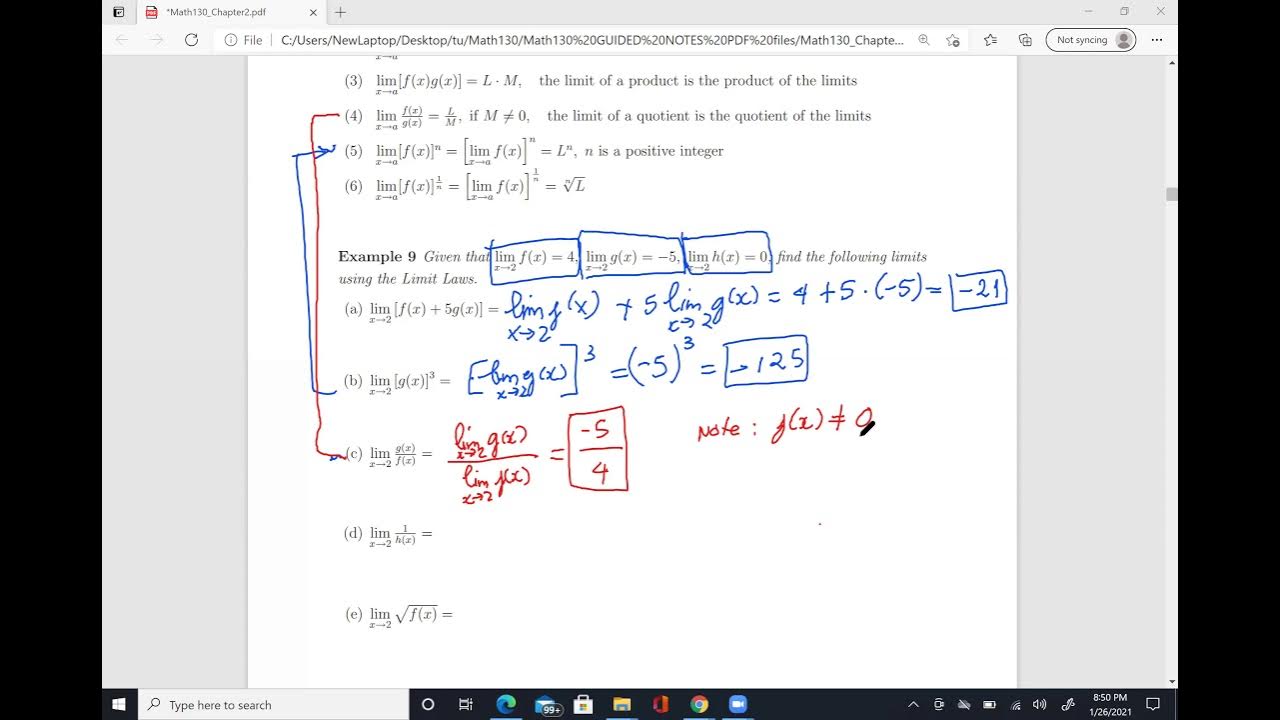 *Math130_Chapter2.pdf
File C:/Users/NewLaptop/Desktop/tu/Math130/Math130%20GUIDED%20NOTES%20PDF%20files/Math130_Chapte... Not syncing
x→a
(3) lim[f(x)g(x)] = L · M, the limit of a product is the product of the limits
x→a
(4) lim f(x)/g(x) = L/M, if M ≠ 0, the limit of a quotient is the quotient of the limits
x→a
(5) lim[f(x)]ⁿ = [lim f(x)]ⁿ = Lⁿ, n is a positive integer
x→a x→a
(6) lim[f(x)]^(1/n) = [lim f(x)]^(1/n) = ⁿ√L
x→a x→a
Example 9 Given that lim f(x) = 4, lim g(x) = −5, lim h(x) = 0, find the following limits
x→2 x→2 x→2
using the Limit Laws.
(a) lim [f(x) + 5g(x)] = lim f(x) + 5 lim g(x) = 4 + 5 · (−5) = −21
x→2 x→2 x→2
(b) lim [g(x)]³ = [lim g(x)]³ = (−5)³ = −125
x→2 x→2
(c) lim g(x)/f(x) = lim g(x) / lim f(x) = −5/4 Note: f(x) ≠ 0
x→2 x→2 x→2
(d) lim 1/h(x) =
x→2
(e) lim √f(x) =
x→2
Type here to search
99+
8:50 PM
1/26/2021